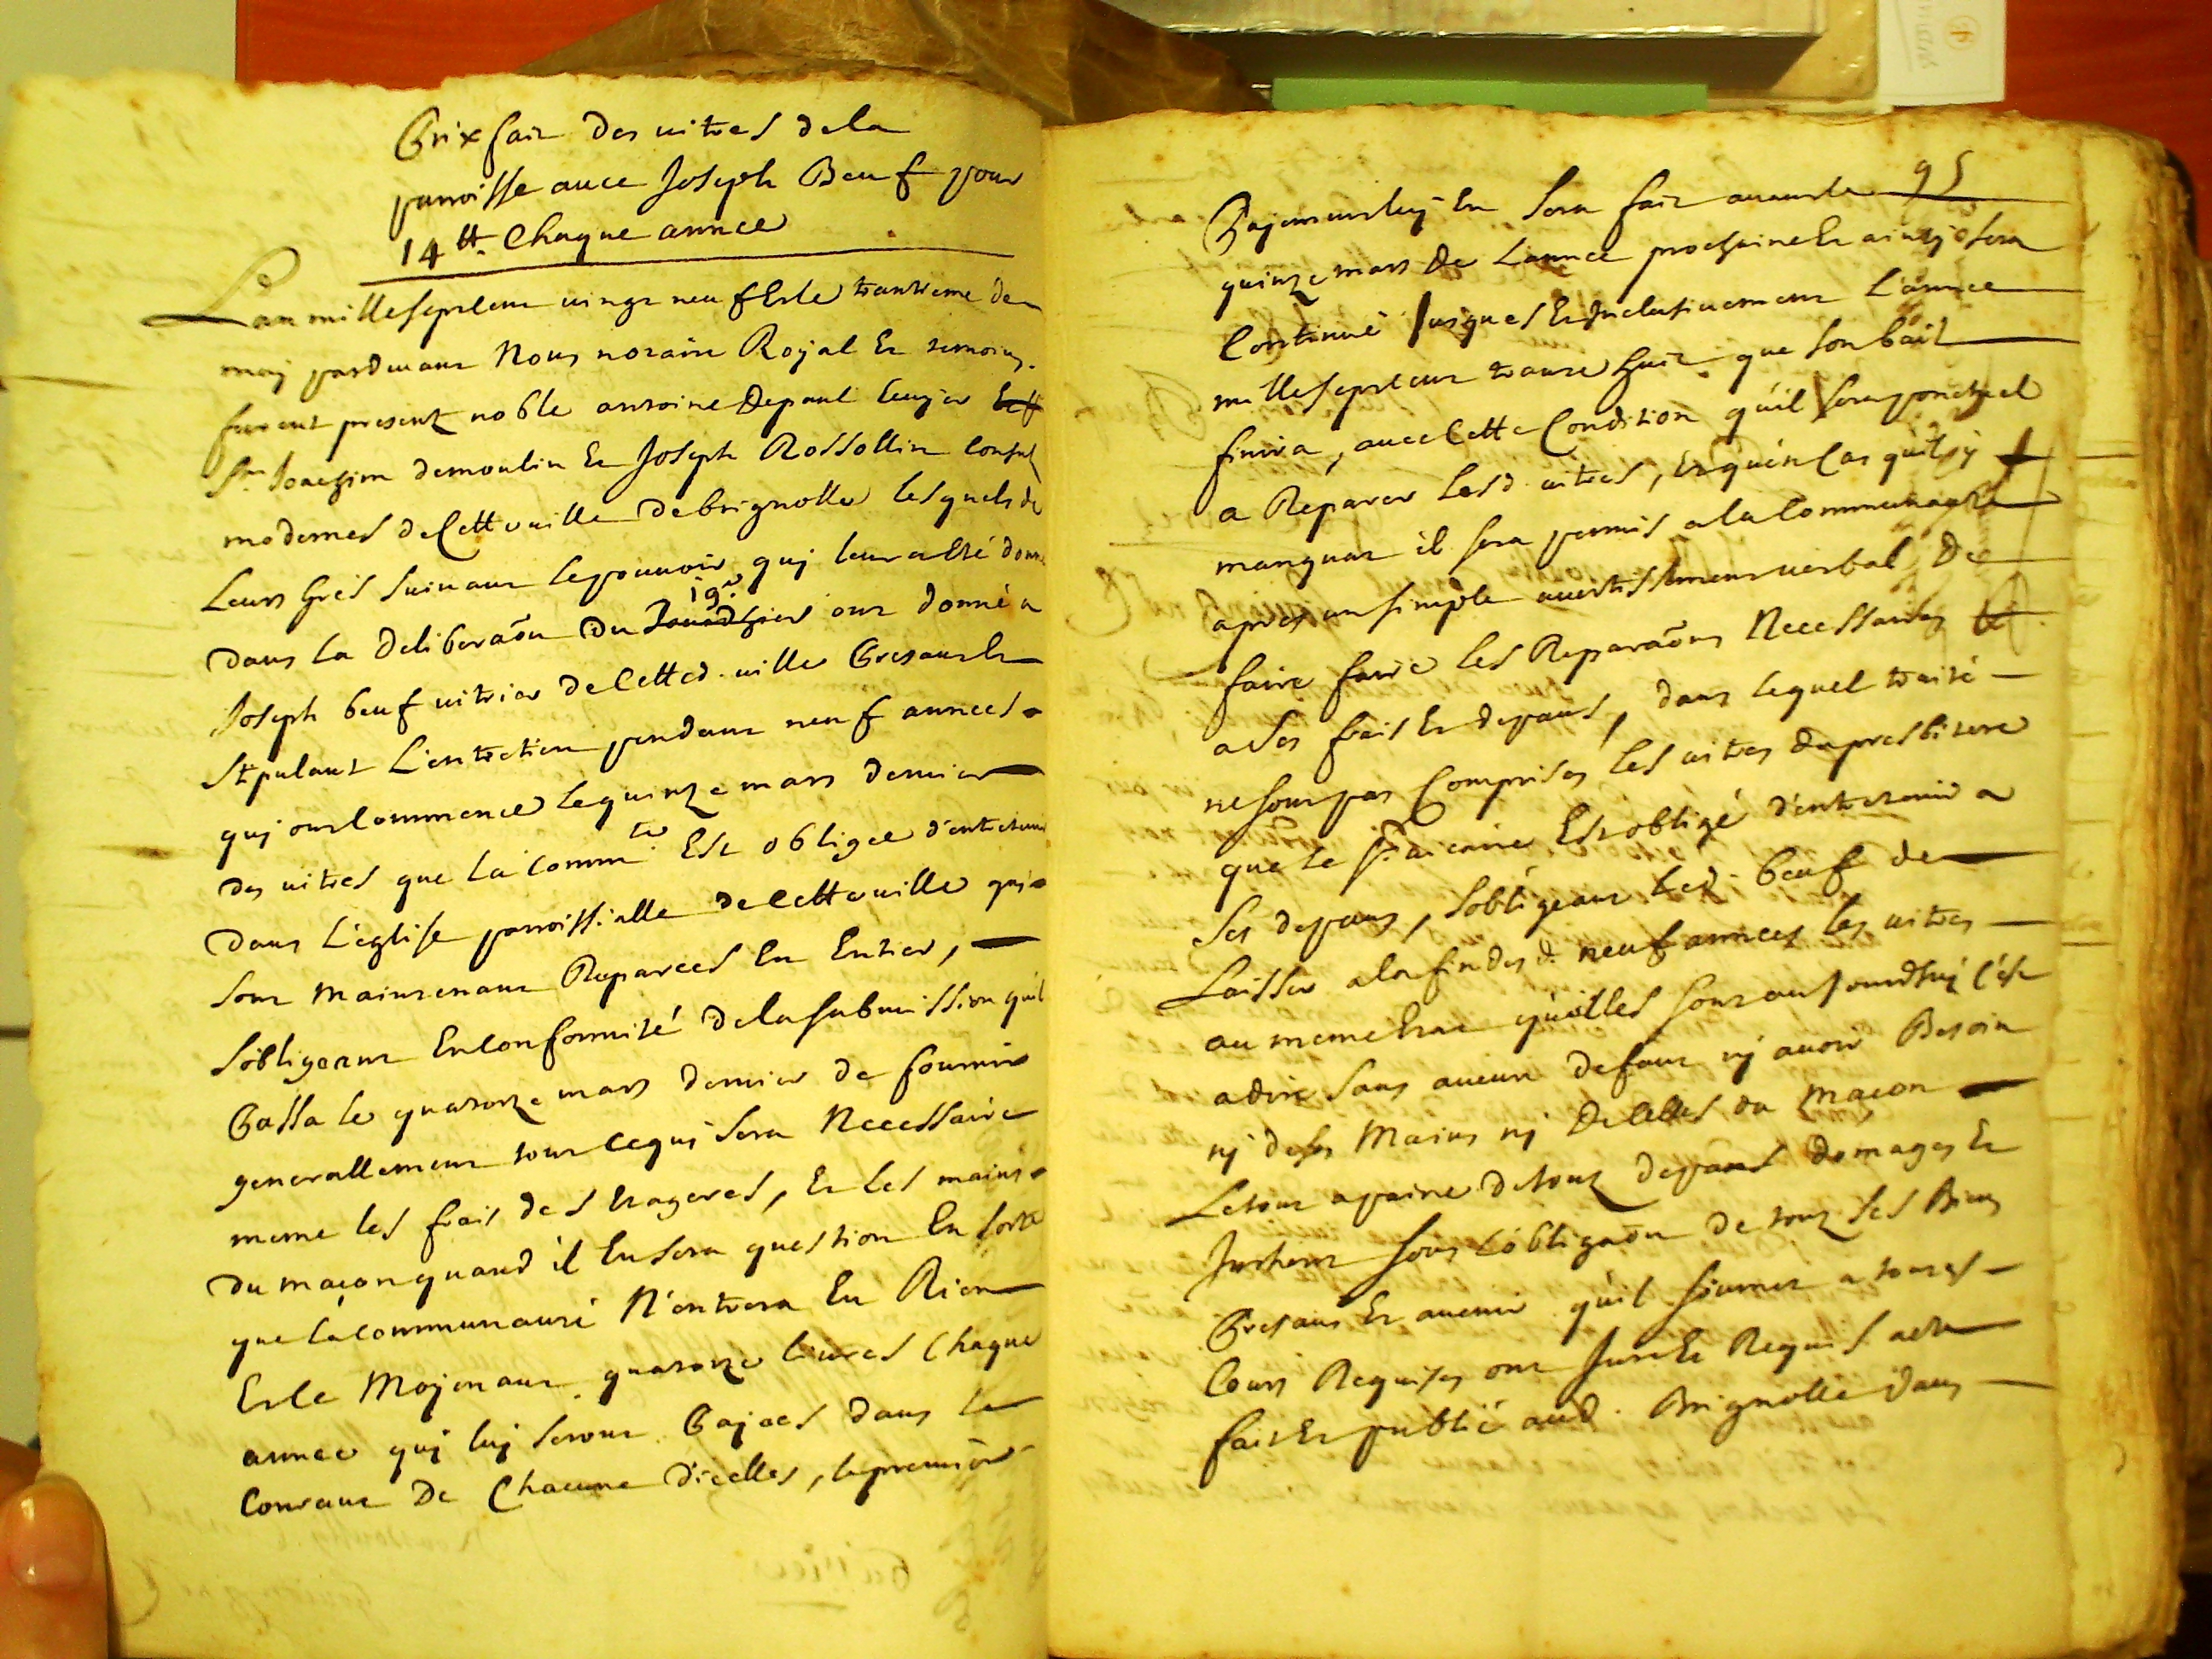 Prixfait des vitres de la
parroisse avec Joseph Beuf pour
14 ₶. Chaque année
Lan mille sept cent vingt neuf & le trantieme de
maj pardevant Nous notaire Royal & temoins
furent present noble antoine Depaul
Sr. Joachim demoulin & Joseph Rossollin consulz
modernes de Cette ville de brignolle lesquels de
Leurs Grés suivant le pouvoir quj leur a esté donné
dans la Deliberaõn du 19e ont donné a
Joseph beuf vitrier de Cette d. ville Present &
Stipulant L'entretien pendant neuf années
quj ont commencé le quinze mars dernier
des vitres que la Commté. Est obligée d'entretenir
dans L'eglise parroissialle de Cette ville quj
sont maintenant Reparées En Entier,
s'obligeant En Conformité de la submission qu'il
Passa le quatorze mars dernier de fournir
generallement tout ce quj sera Necessaire
meme les frais des Etageres, & les mains
du maçon quand il En sera question En sorte
que la Communauté N'entrera En Rien
Et le Mojenant quatorze livres Chaque
année quj luj seront Pajées dans le
Courant De Chacune D'icelles, le premier
95
Pajement luj En sera fait avant le
quinze mars De L'année prochaine & ainsj sera
Continué Jusques & Inclusivement L'année
mille sept cent trante huit que son bail
finira, avec Cette Condition qu'il sera ponctuel
a Reparer Lesd. vitres, & qu'en Cas qu'il y
manquat il sera permis a la Communauté
apres un simple avertissement verbal De
faire faire les Reparaõns Necessaires
a ses frais & depans, dans lequel traité
ne sont pas Comprises les vitres du presbitere
que le Sr. vicaire Est obligé d'entretenir a
ses depans, s'obligeant Led. beuf de
Laisser a la fin des d. neuf années les vitres
au meme Etat qu'elles sont aujourdhuj C'est
a dire sans aucun defaut nj avoir Besoin
nj de ses Mains nj De celles du maçon
Le tout a paine de touz depans domages &
Inthers sous L'obligaõn de touz ses Biens
Presans & avenir qu'il soumet a toutes
Cours Requises ont Juré & Requis acte
fait & publié aud. Brignolle dans